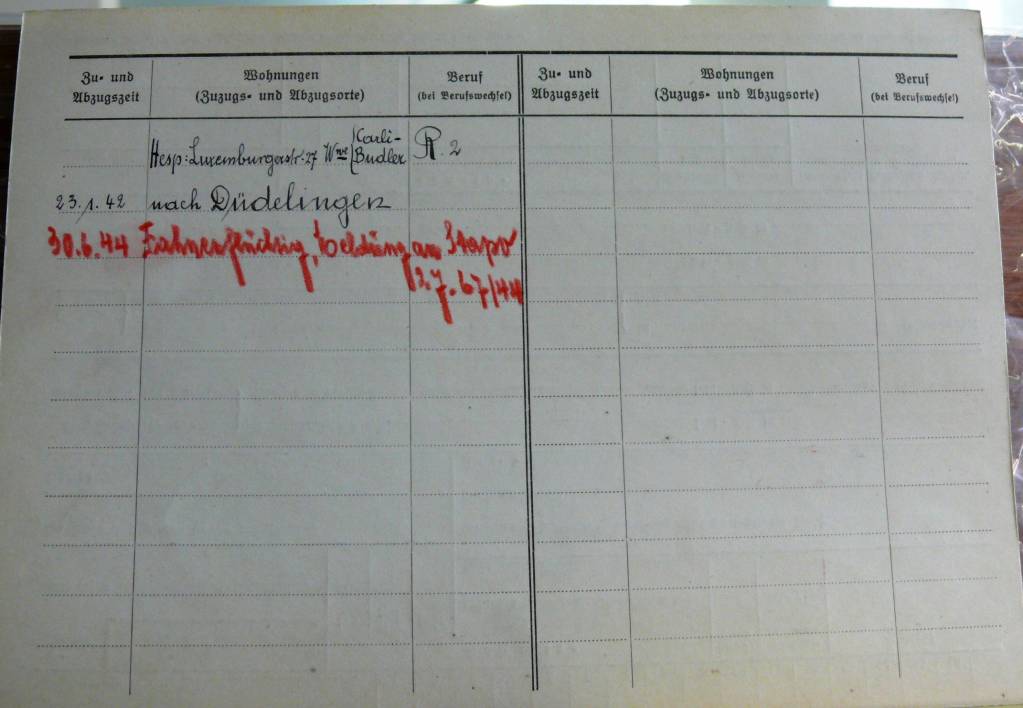 Zu- und Abzugszeit
Wohnungen
(Zuzugs- und Abzugsorte)
Beruf
(bei Berufswechsel)
Zu- und Abzugszeit
Wohnungen
(Zuzugs- und Abzugsorte)
Beruf
(bei Berufswechsel)
Hesp: Luxemburgerstr. 27 Wwe Carli-Budler R. 2
23.1.42 nach Düdelingen
30.6.44 Fahnenflüchtig, Meldung an Stapo